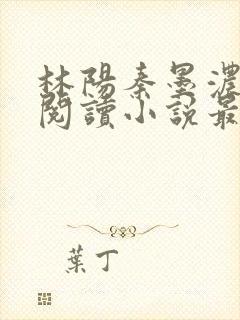 林陽秦墨濃
閱讀小說最
葉丁